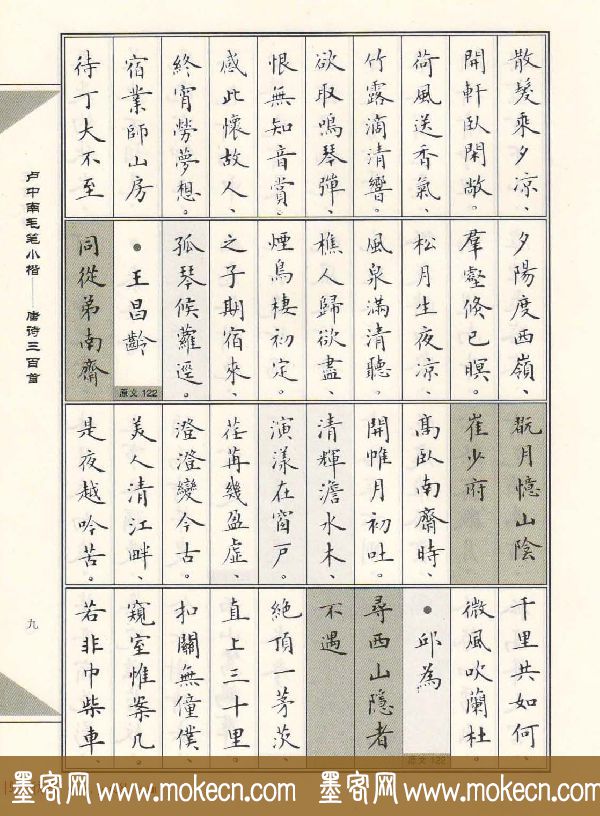 散髮乘夕涼、
開軒臥閑敞。
荷風送香氣、
竹露滴清響。
欲取鳴琴彈、
恨無知音賞。
感此懷故人、
終宵勞夢想。
宿業師山房
待丁大不至
夕陽度西嶺、
羣壑倏已暝。
松月生夜凉、
風泉滿清聽。
樵人歸欲盡、
煙鳥棲初定。
之子期宿來、
孤琴候蘿逕。
●王昌齡
原文 122
同從弟南齋
翫月憶山陰
崔少府
高臥南齋時、
開帷月初吐。
清輝澹水木、
演漾在窗戶。
荏苒幾盈虛、
澄澄變今古。
美人清江畔、
是夜越吟苦。
千里共如何、
微風吹蘭杜。
●邱為
原文 122
尋西山隱者
不遇
絕頂一茅茨、
直上三十里。
扣關無僮僕、
窺室惟案几。
若非巾柴車、
卢中南毛笔小楷——唐诗三百首
九
墨客网 www.mokecn.com 墨客网 www.mokecn.com